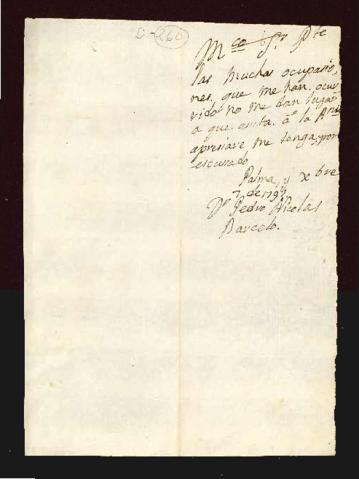 D-260
M.co S.or P.te
las muchas ocupasio,
nes, que me han, ocur
rido no me dan lugar
a que asista. a la
apresiare me tenga, por
escusado
Palma, y Xbre
7, de 179
D.n Pedro Nicolas
Barcelo.